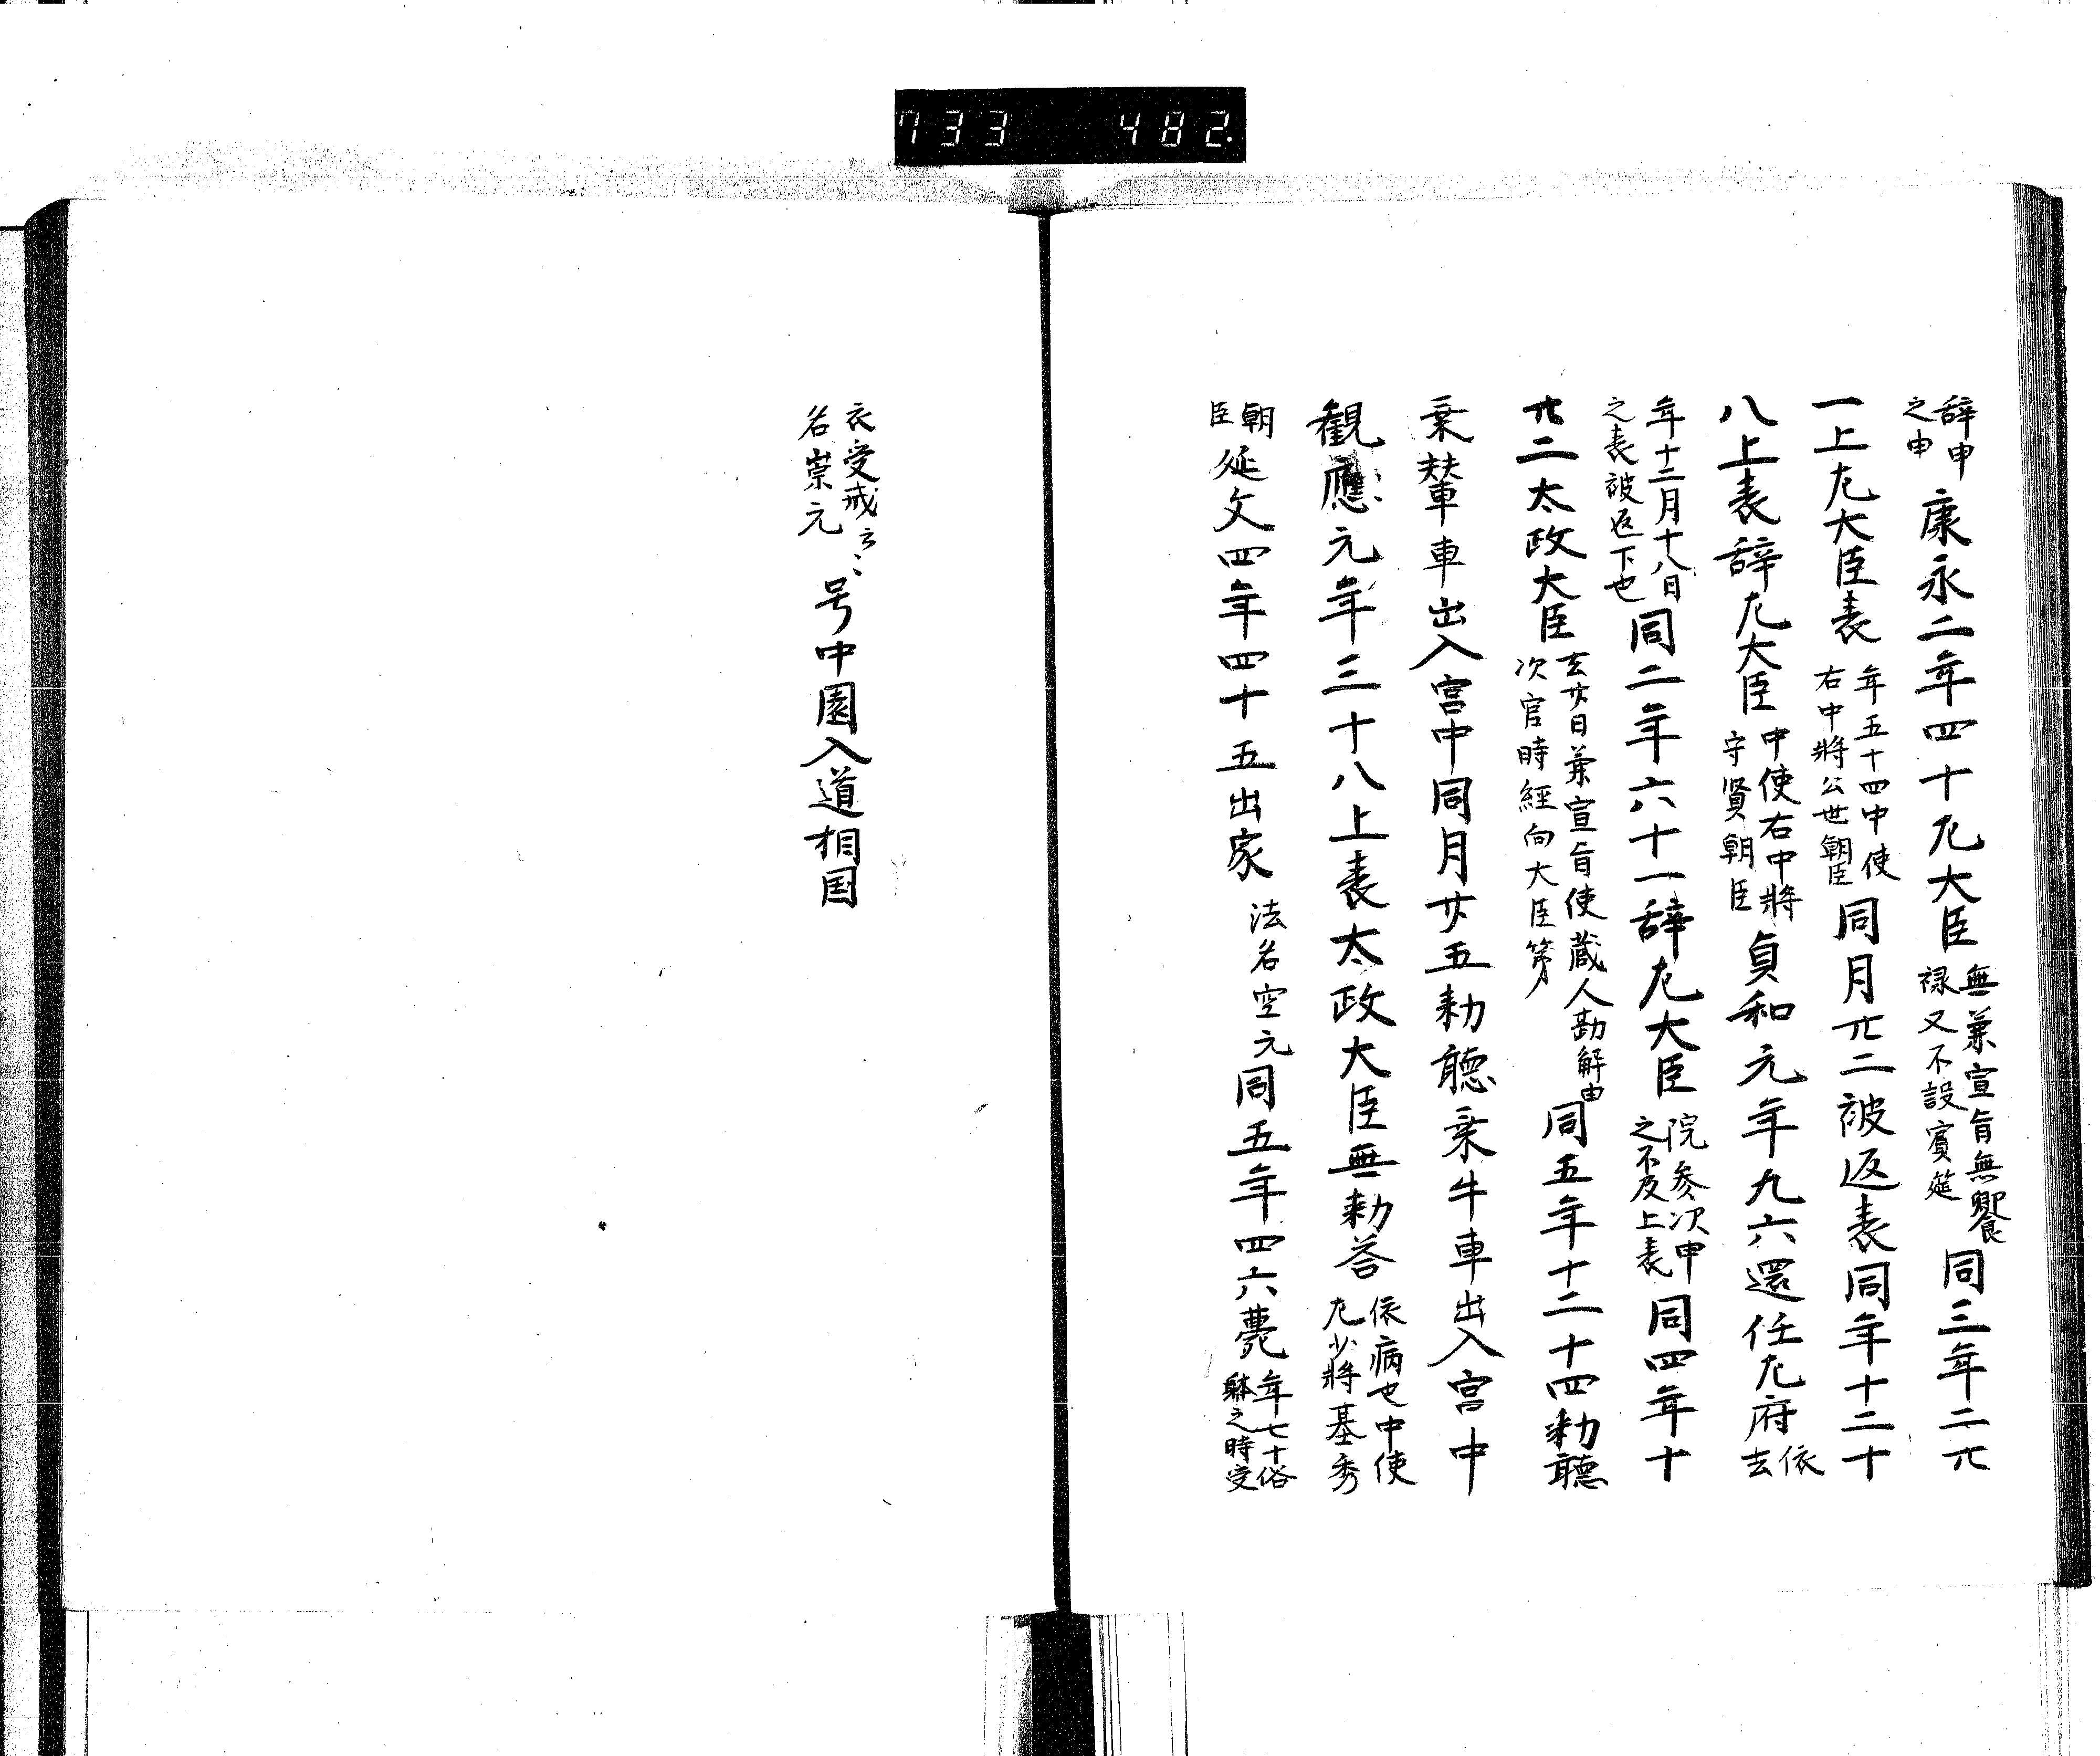 733 482
辞申之申康永二年四十九大臣無兼宣旨無饗禄又不設賓筵同三年二廿
一上左大臣表年五十四中使右中將公世朝臣同月廿二被返表同年十二十
八上表辞左大臣中使右中將守賢朝臣貞和元年九六還任左府依去
年十二月十八日之表被返下也同二年六十一辞左大臣院参次申之不及上表同四年十
廿二太政大臣去廿日兼宣旨使蔵人勘解由次官時經向大臣第同五年十二十四勅聽
乗輦車出入宮中同月廿五勅聽乗牛車出入宮中
観應元年三十八上表太政大臣無勅答依病也中使左少將基秀
朝臣延文四年四十五出家法名空元同五年四六薨年七十俗躰之時受
衣受戒云々名崇元号中園入道相国